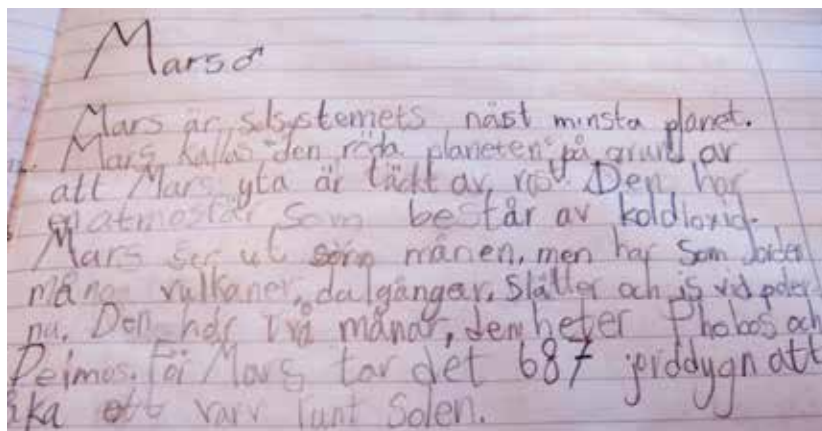 Mars♂
Mars är solsystemets näst minsta planet.
Mars kallas "den röda planeten" på grund av
att Mars yta är täckt av rost. Den har
en atmosfär som består av koldioxid.
Mars ser ut som månen, men har som Jorden
många vulkaner, dalgångar, slätter och is vid poler
na. Den har två månar, den heter Phobos och
Deimos. För Mars tar det 687 jorddygn att
åka ett varv runt Solen.